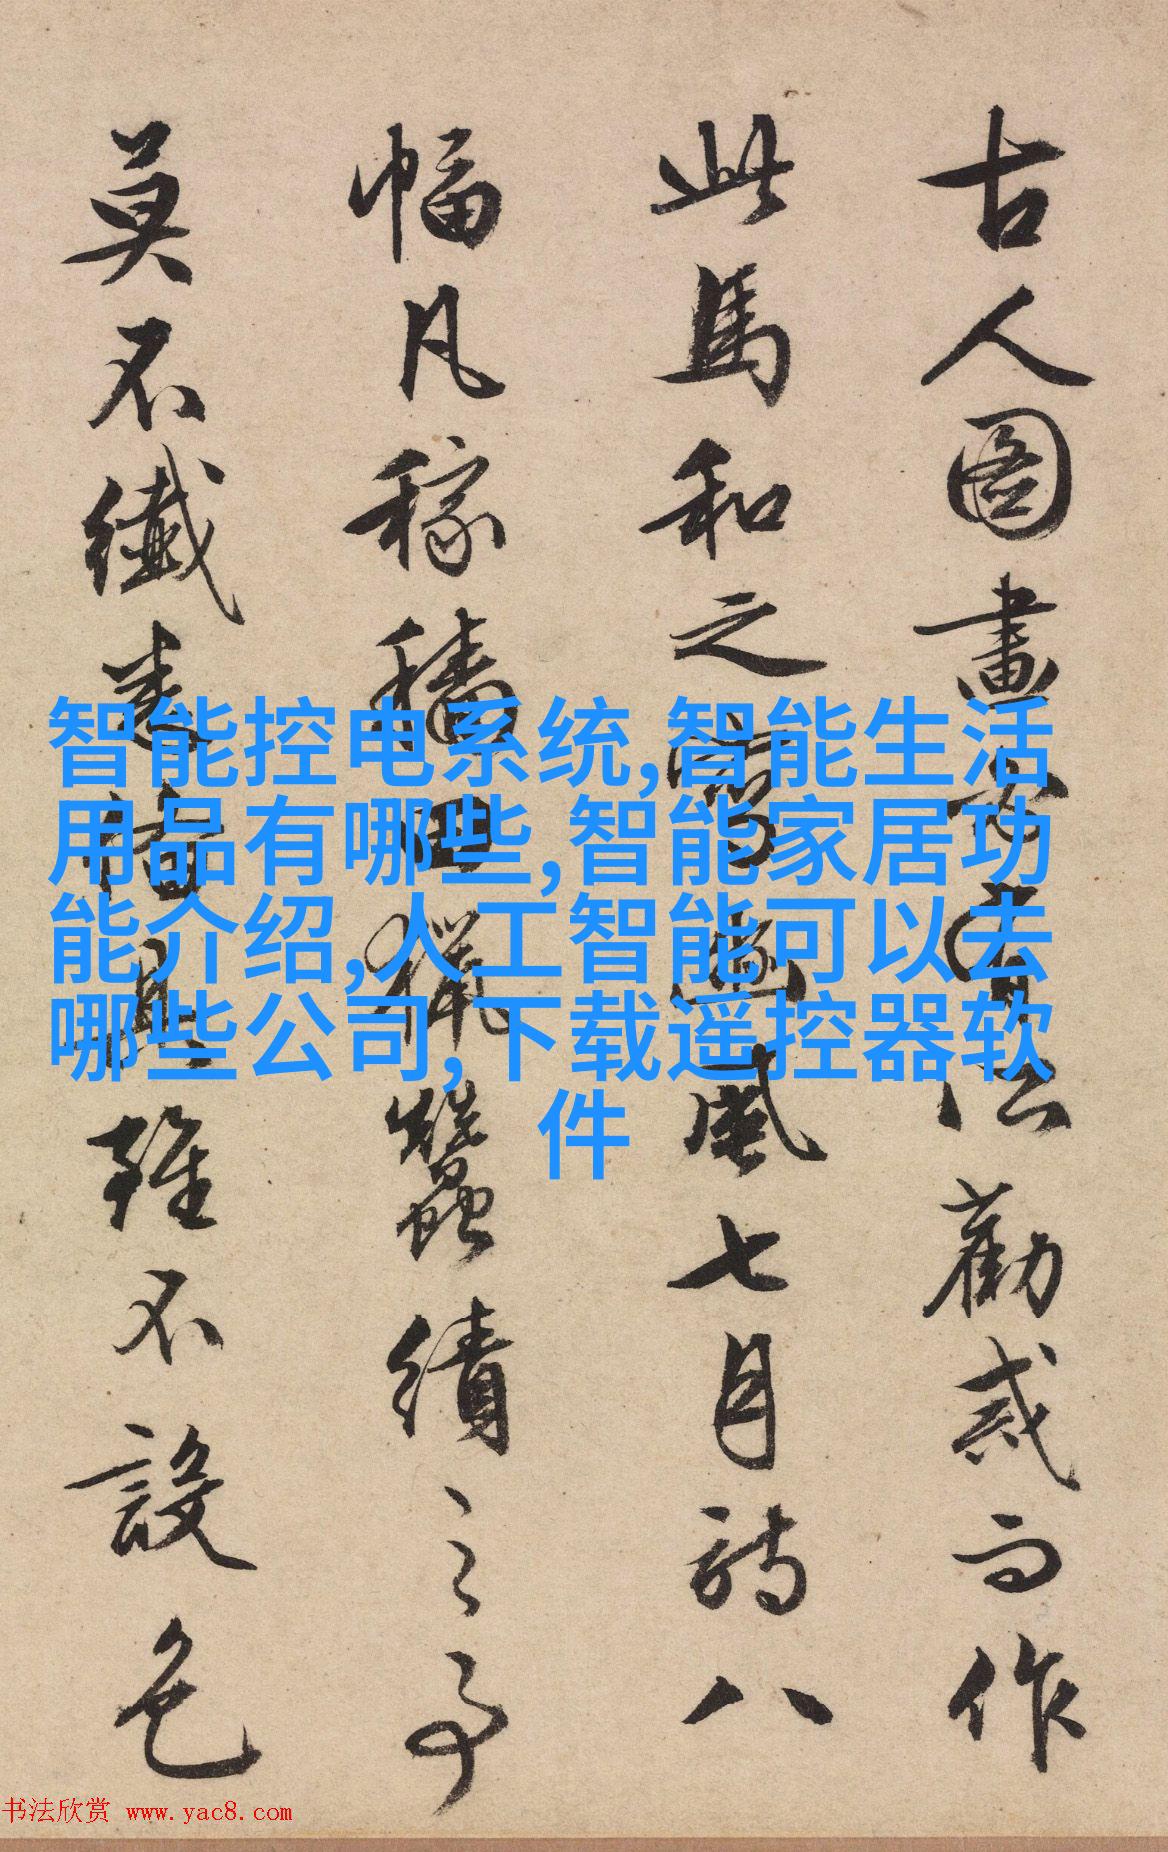 古人圖畫勸戒而作
此馬和之寫豳風七月詩八
幅凡稼穡田獵蠶績之事
莫不纖悉備具雖不設色
智能控电系统,智能生活
用品有哪些,智能家居功
能介绍,人工智能可以去
哪些公司,下载遥控器软
件
书法欣赏 www.yac8.com